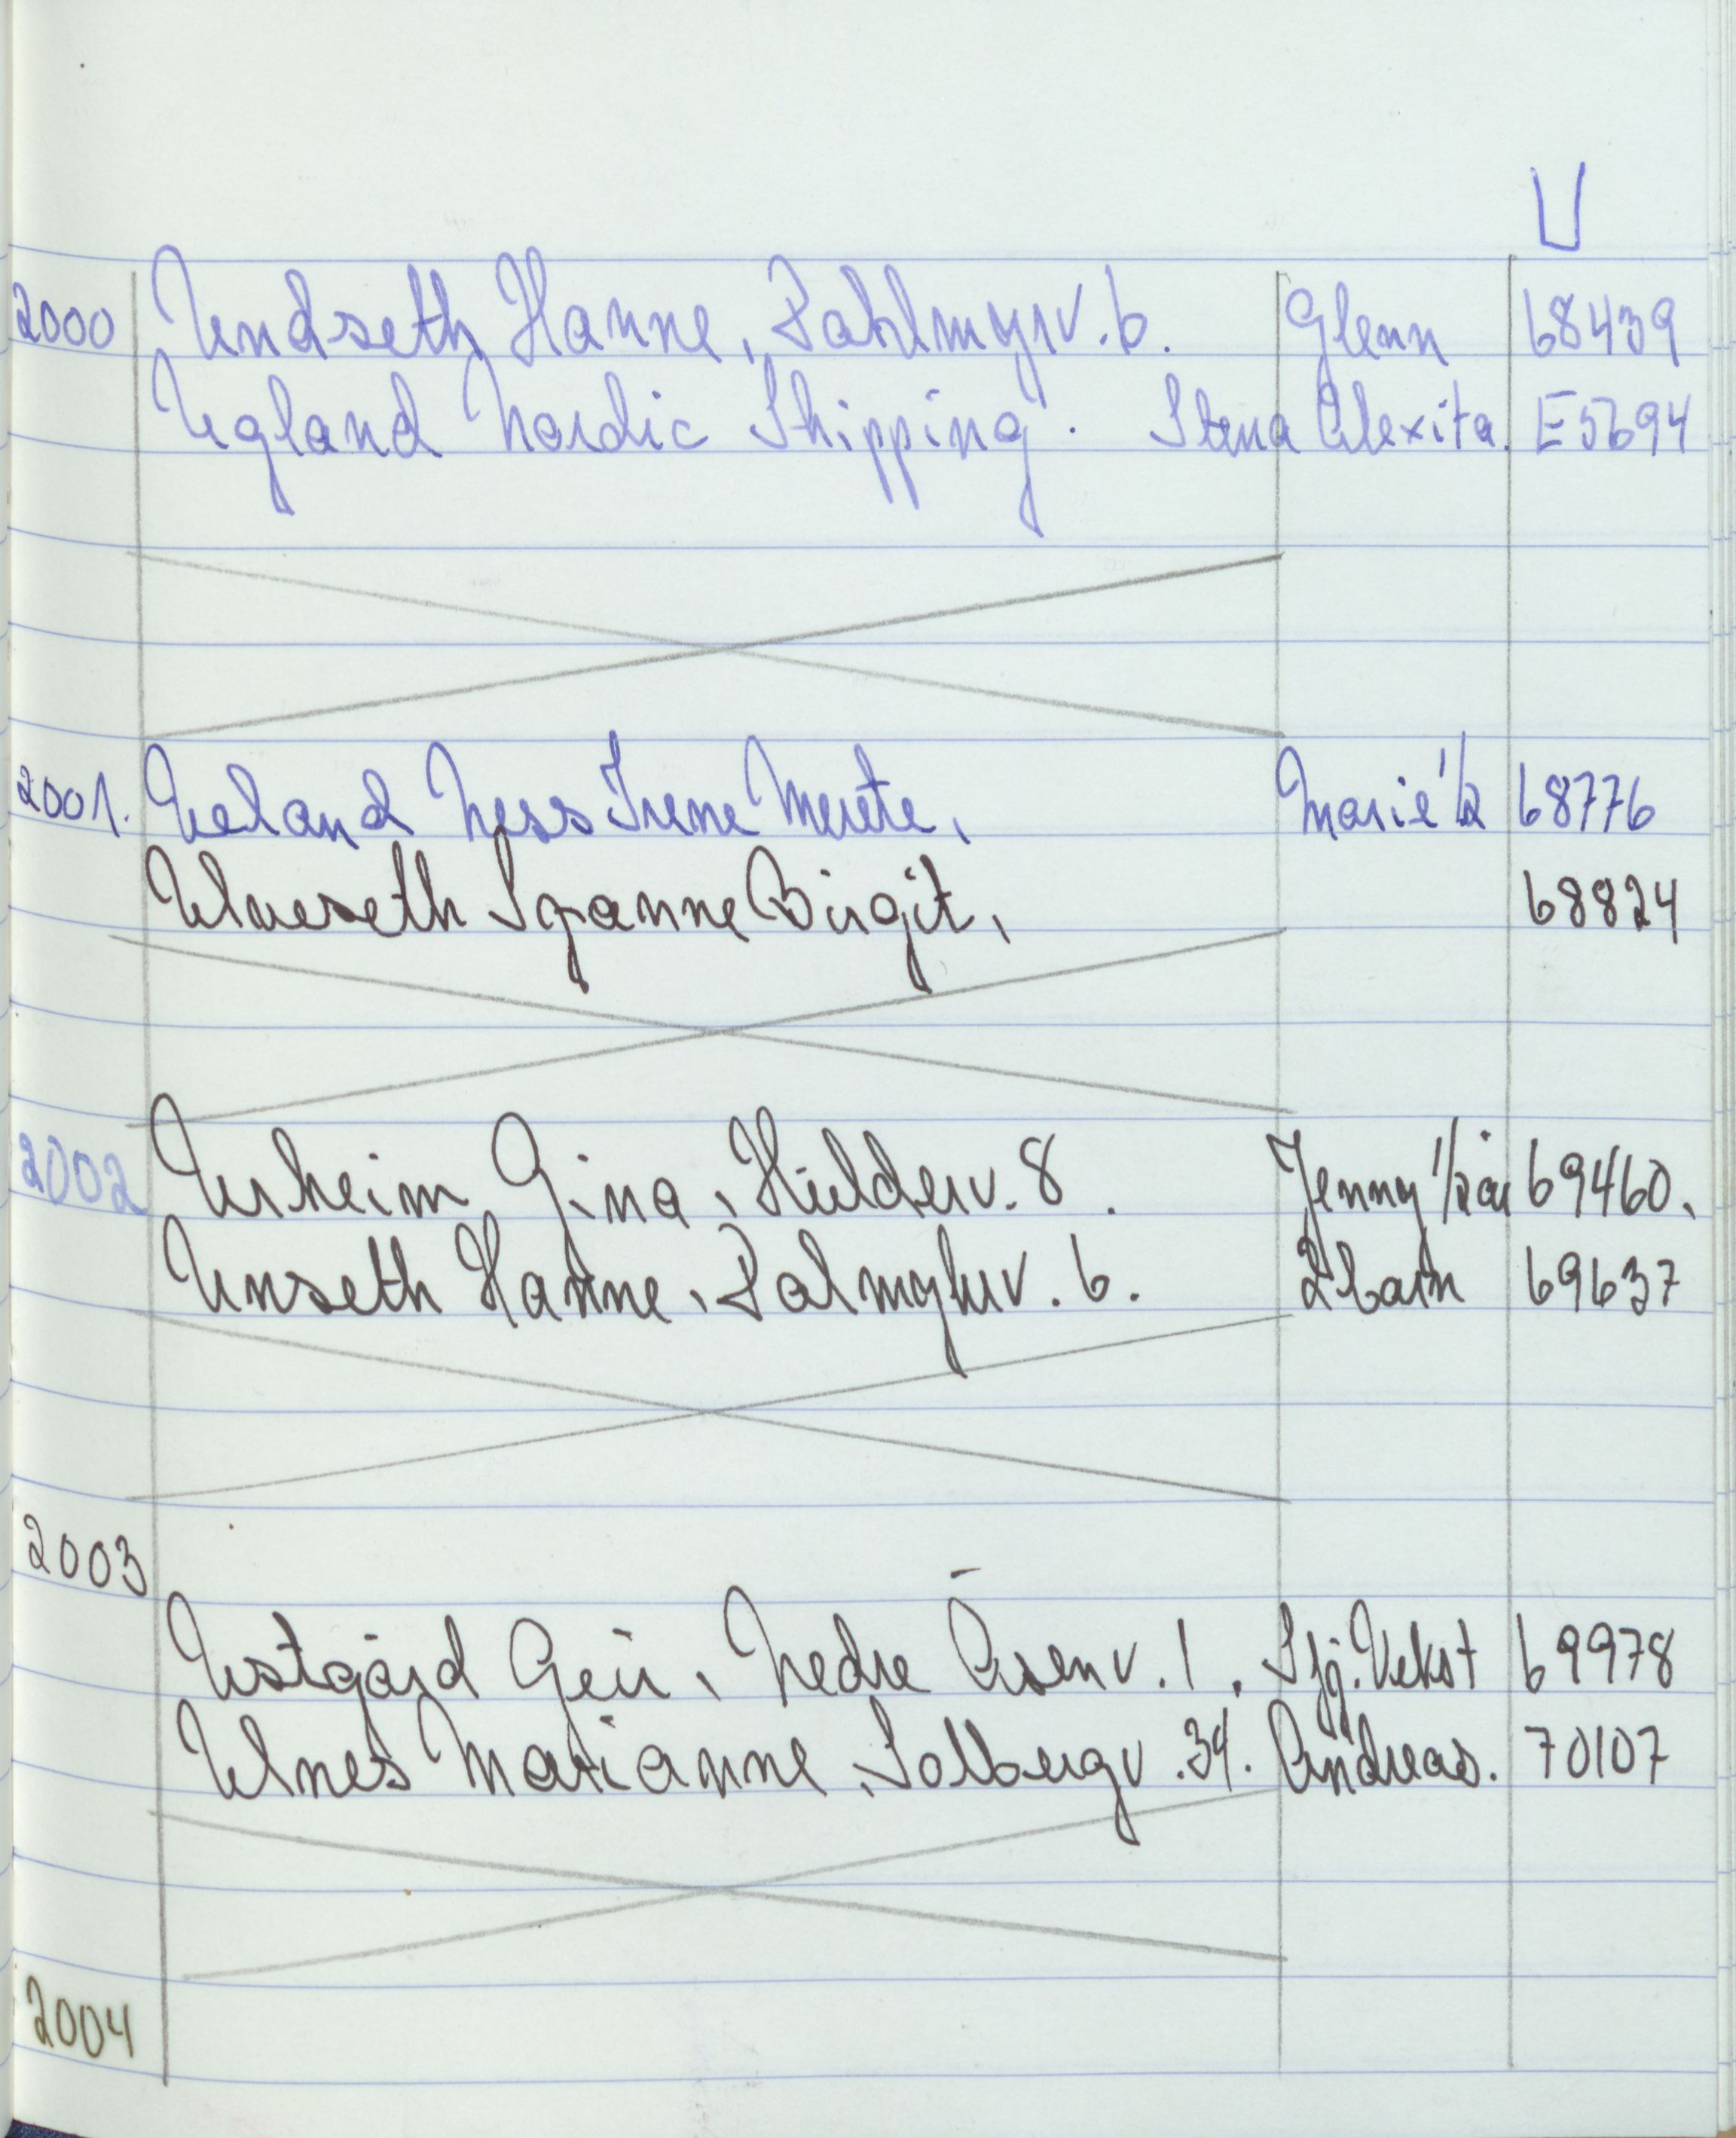 U
2000 Undseth Hanne, Dahlmyrv. 6. Glenn 68439
Ugland Nordic Shipping. Stena Alexita. E5694
2001. Ueland Ness Irene Merete, Marie 1/2 68776
Ulveseth Synnne Birgit, 68824
2002 Urheim Gina, Hulderv. 8. Jenny 1/2 år 69460.
Unseth Hanne, Dalmyhrv. 6. 2 barn 69637
2003
Ustgård Geir, Nedre Åsenv. 1. Sfj. Vekst 69978
Ulnes Marianne, Solbergv. 34. Andreas. 70107
2004